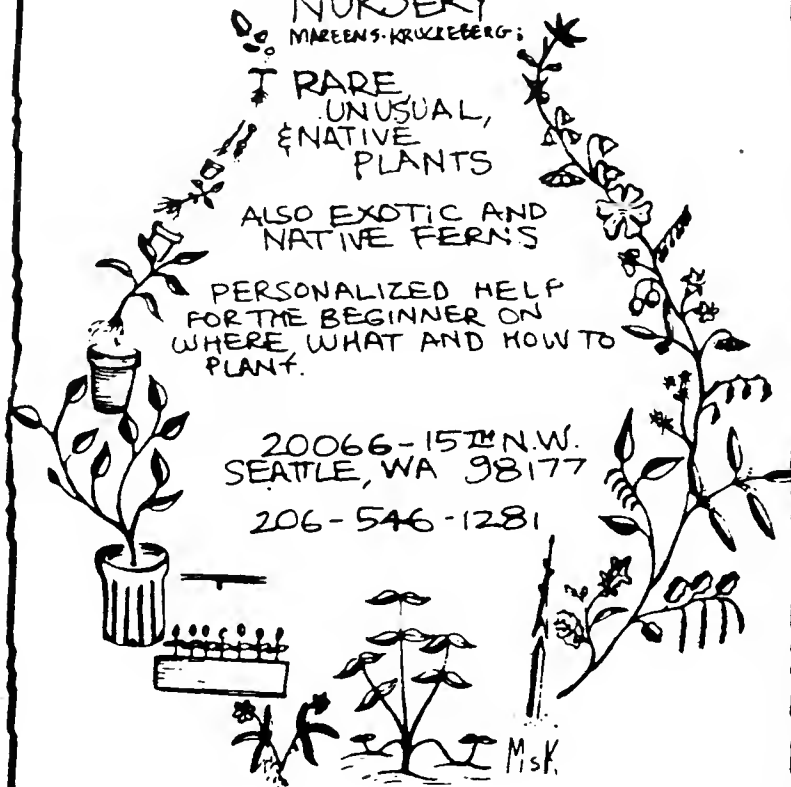 NURSERY
MAREEN S. KRUCKEBERG:
RARE,
UNUSUAL,
& NATIVE
PLANTS
ALSO EXOTIC AND
NATIVE FERNS
PERSONALIZED HELP
FOR THE BEGINNER ON
WHERE WHAT AND HOW TO
PLANT.
20066-15TH N.W.
SEATTLE, WA 98177
206-546-1281
MsK